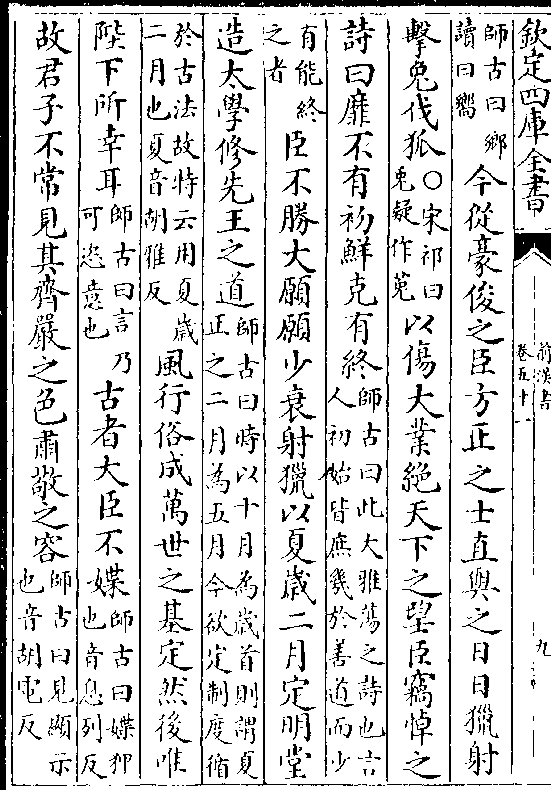 欽定四庫全書
前漢書
卷五十一
九
師古曰鄉
讀曰嚮
今從豪俊之臣方正之士直與之日日獵射
擊兔伐狐
○宋祁曰
兔疑作菟
以傷大業絶天下之望臣竊悼之
詩曰靡不有初鮮克有終
師古曰此大雅蕩之詩也言
人初始皆庶幾於善道而少
有能終
之者
臣不勝大願願少衰射獵以夏歲二月定明堂
造太學修先王之道
師古曰時以十月為歲首則謂夏
正之二月為五月今欲定制度循
於古法故特云用夏歲
二月也夏音胡雅反
風行俗成萬世之基定然後唯
陛下所幸耳
師古曰言乃
可恣意也
古者大臣不媟
師古曰媟狎
也音息列反
故君子不常見其齊嚴之色肅敬之容
師古曰見顯示
也音胡電反